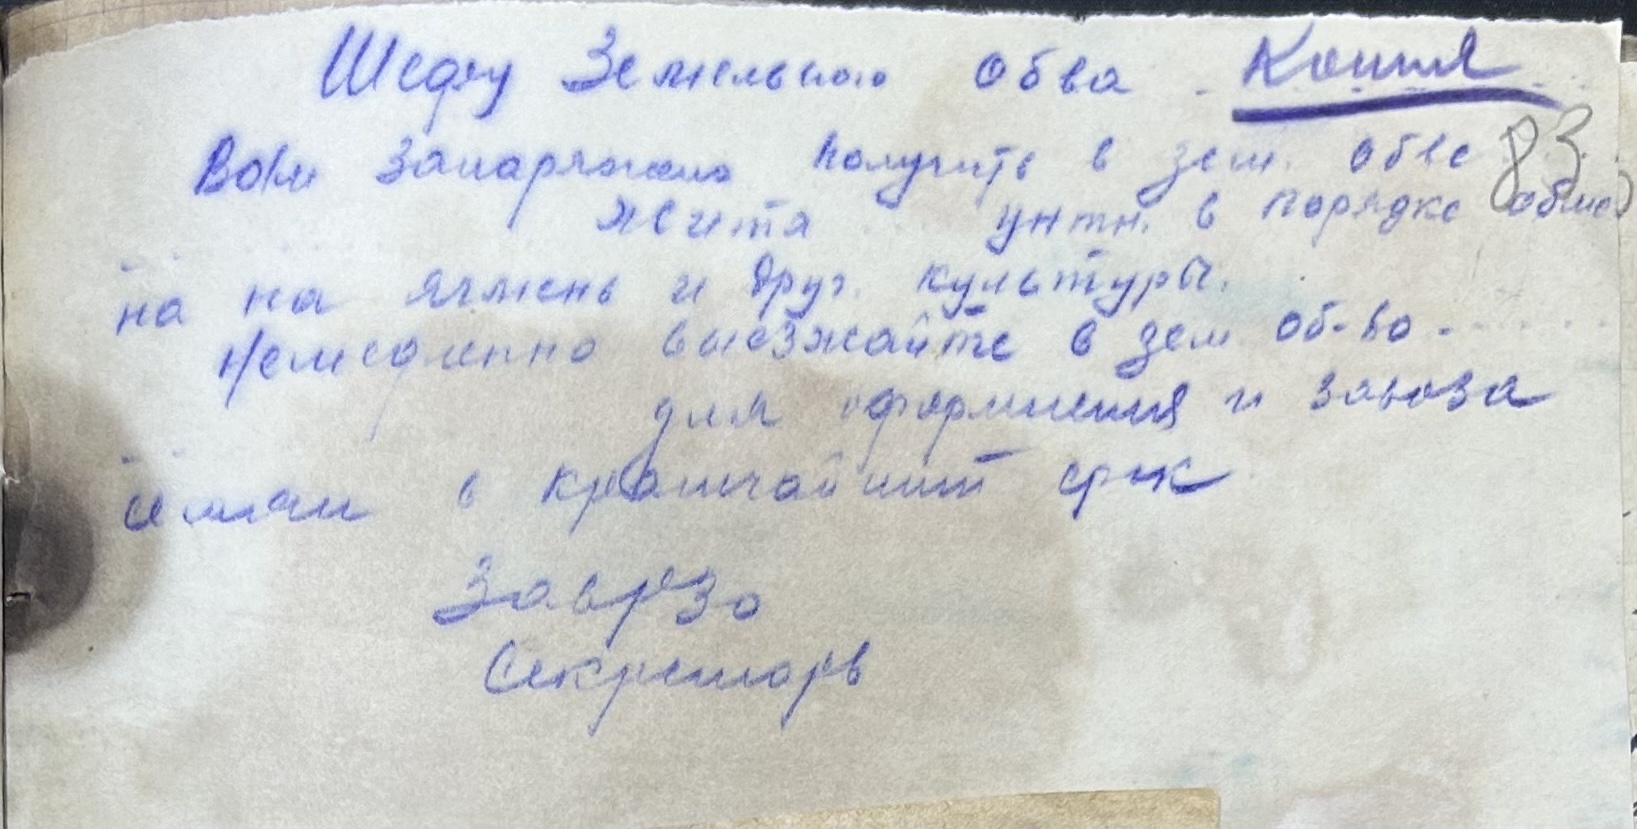 Шефу Земельного Обва Копия
83
Вам занаряжено получить в зем. обве
жита цнтн. в порядке обме
на на ячмень и друг. культуры.
Немедленно выезжайте в зем об-во
для оформления и завоза
семян в кратчайший срок
Заврзо
Секретарь